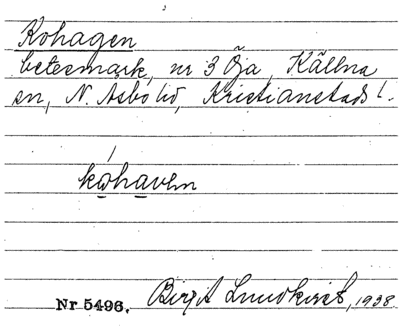 Kohagen
betesmark, nr 3 Öja, Källna
sn, N. Asbo hd, Kristianstads l.
kohaven
Nr 5496. Birgit Lundkvist, 1938